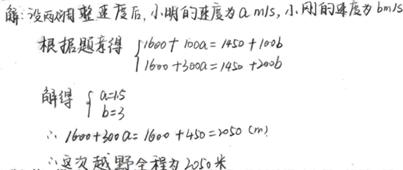 解:设两人调整速度后,小明的速度为a m/s,小刚的速度为b m/s
根据题意得 { 1600+100a=1450+100b
1600+300a=1450+200b
解得 { a=1.5
b=3
∴ 1600+300a=1600+450=2050 (m)
∴这次越野全程为2050米